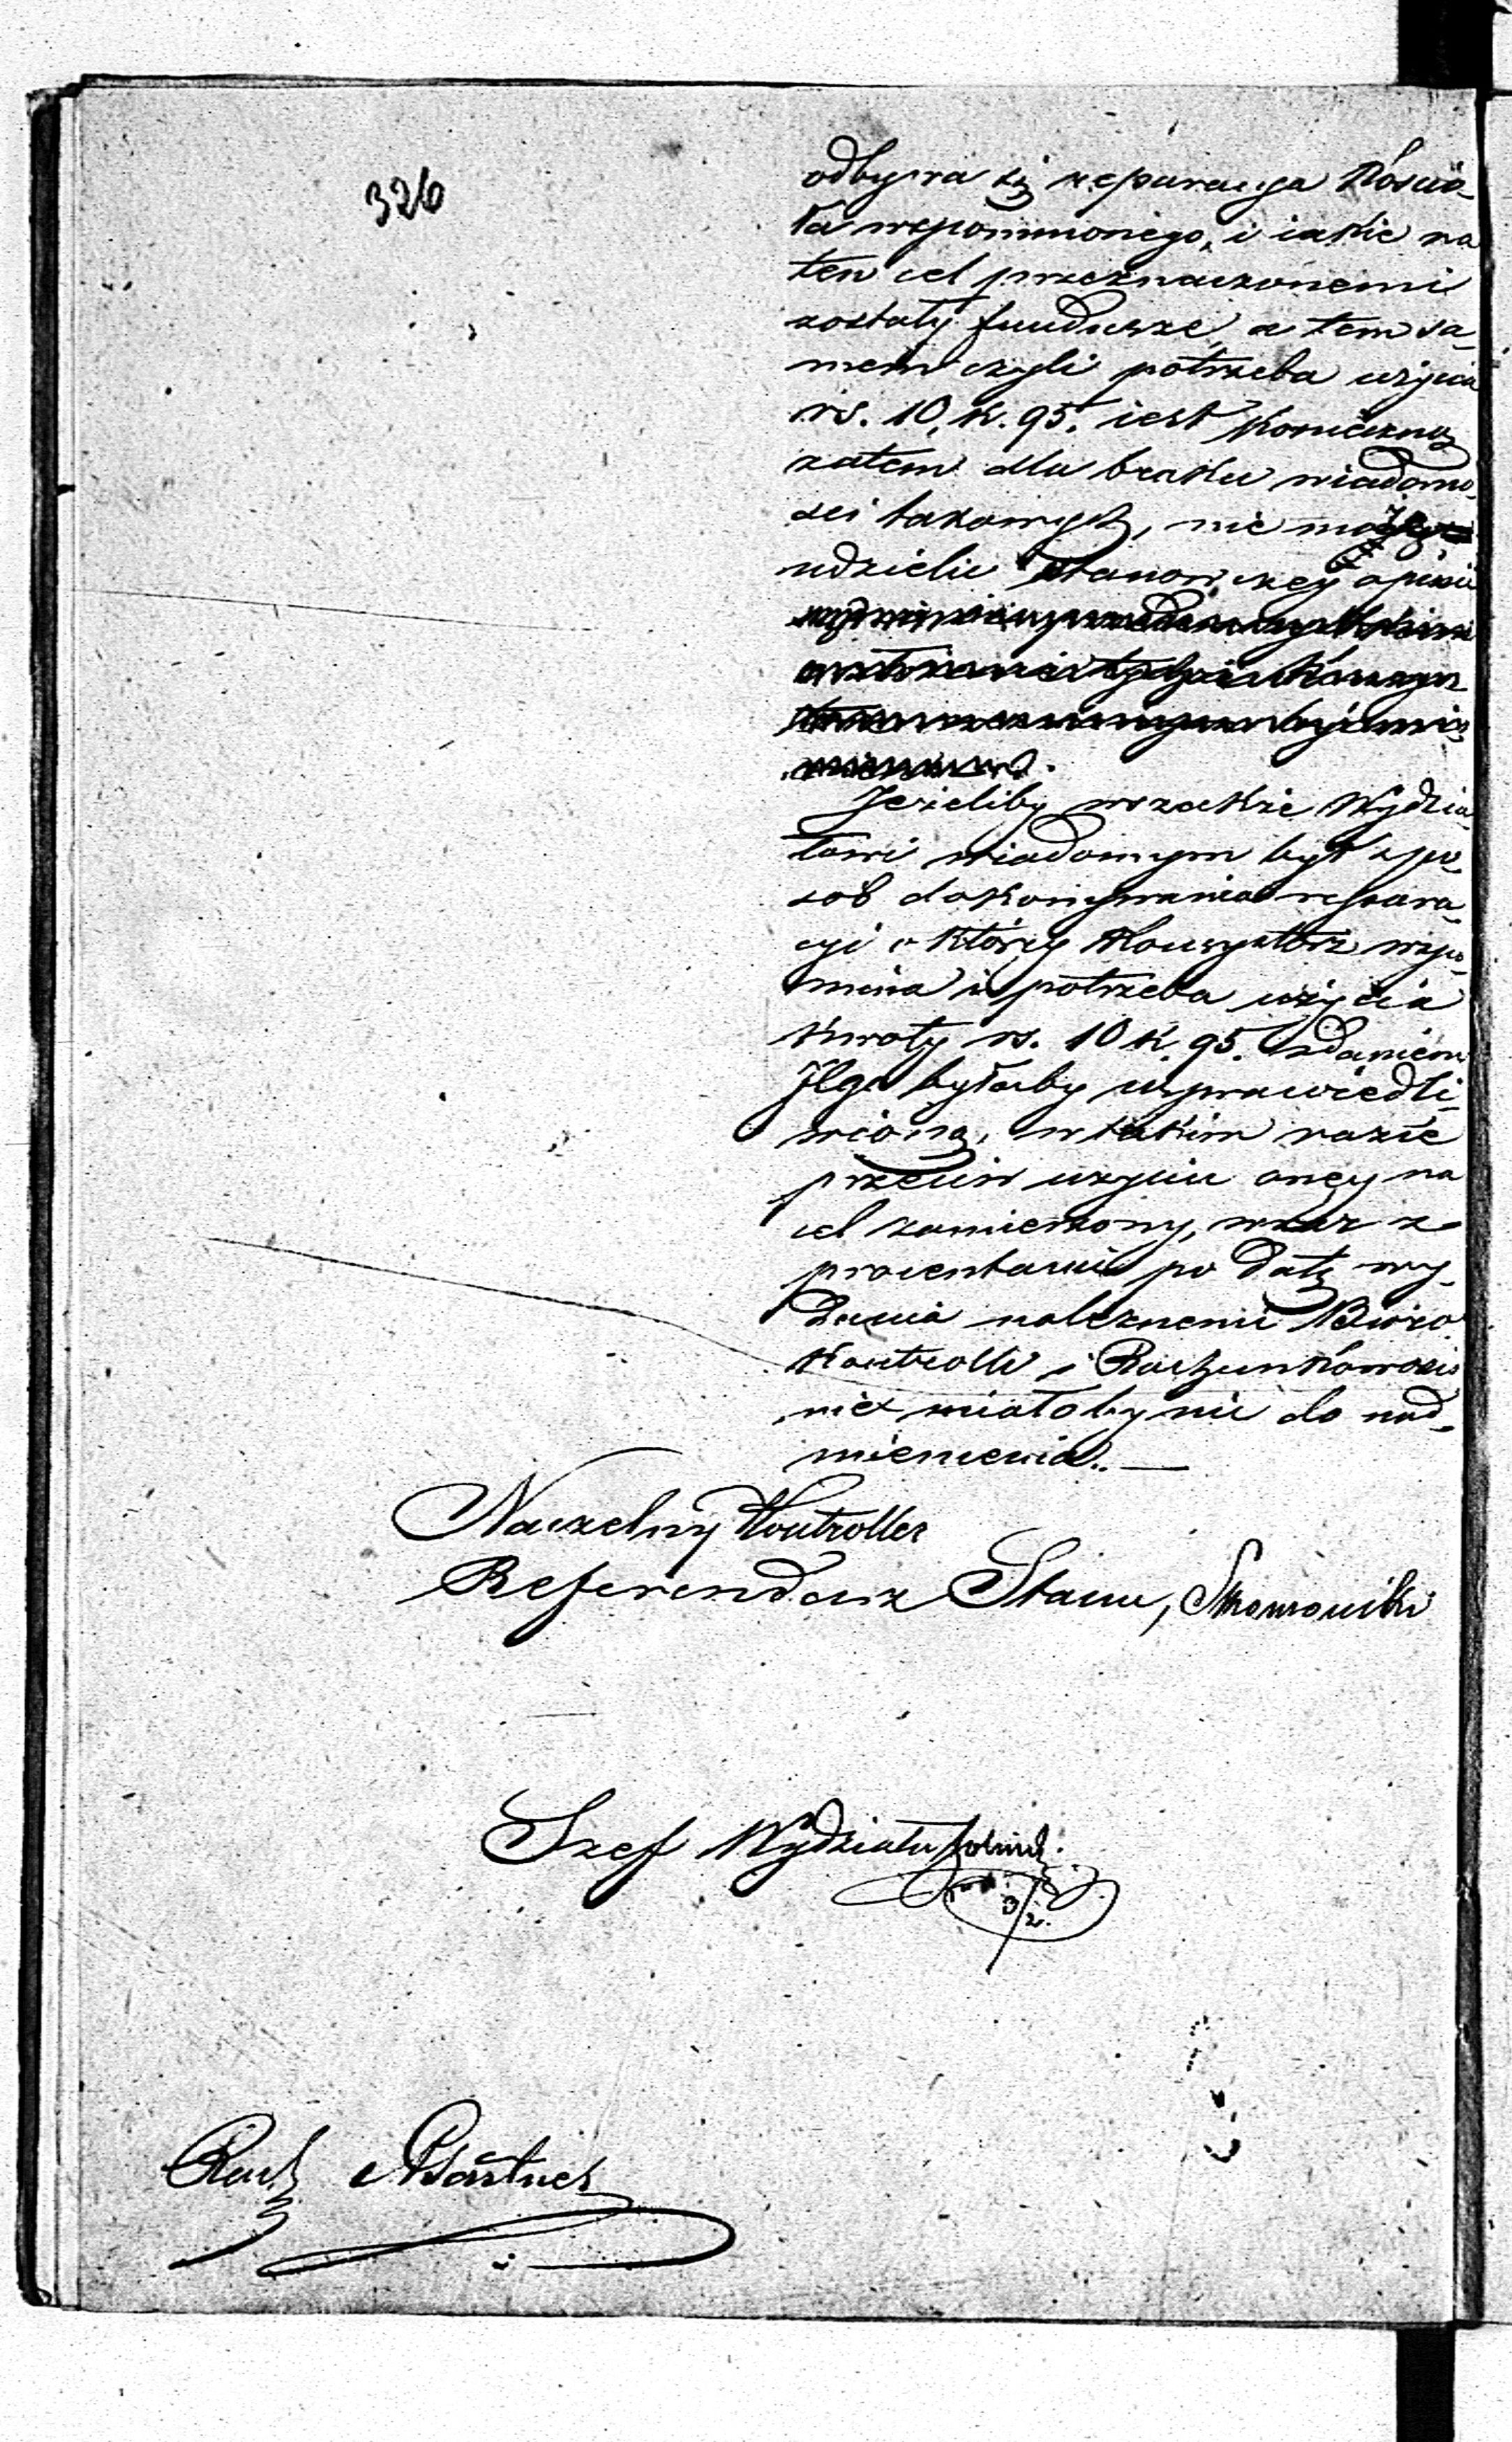 326
odbywa się reparacya Kościo-
ła wspomnionego, i iakie na
ten cel przeznaczonemi
zostały fundusze, a tem sa-
mem czyli potrzeba użycia
rs. 10, k. 95. iest konieczną
zatem dla braku wiadomo-
ści takowych, nie może
udzielić stanowczey opinii
Jeżeliby wszakże Wydzia-
łowi wiadomym był spo-
sób dokonywania repara-
cyi o któréy Konsystorz wspo-
mina i potrzeba użycia
kwoty rs. 10 k. 95. zdaniem
Jego byłaby usprawiedli-
wioną, w takim razie
przeciw użyciu oney na
cel zamierzony, wraz z
procentami po datę wy-
dania należnemi Biuro
Kontrolli i Rachunkowości
nie miałoby nic do nad-
mienienia. —
Naczelny Kontroller
Referendarz Stanu,
Szef Wydziału
3/2.
Rach